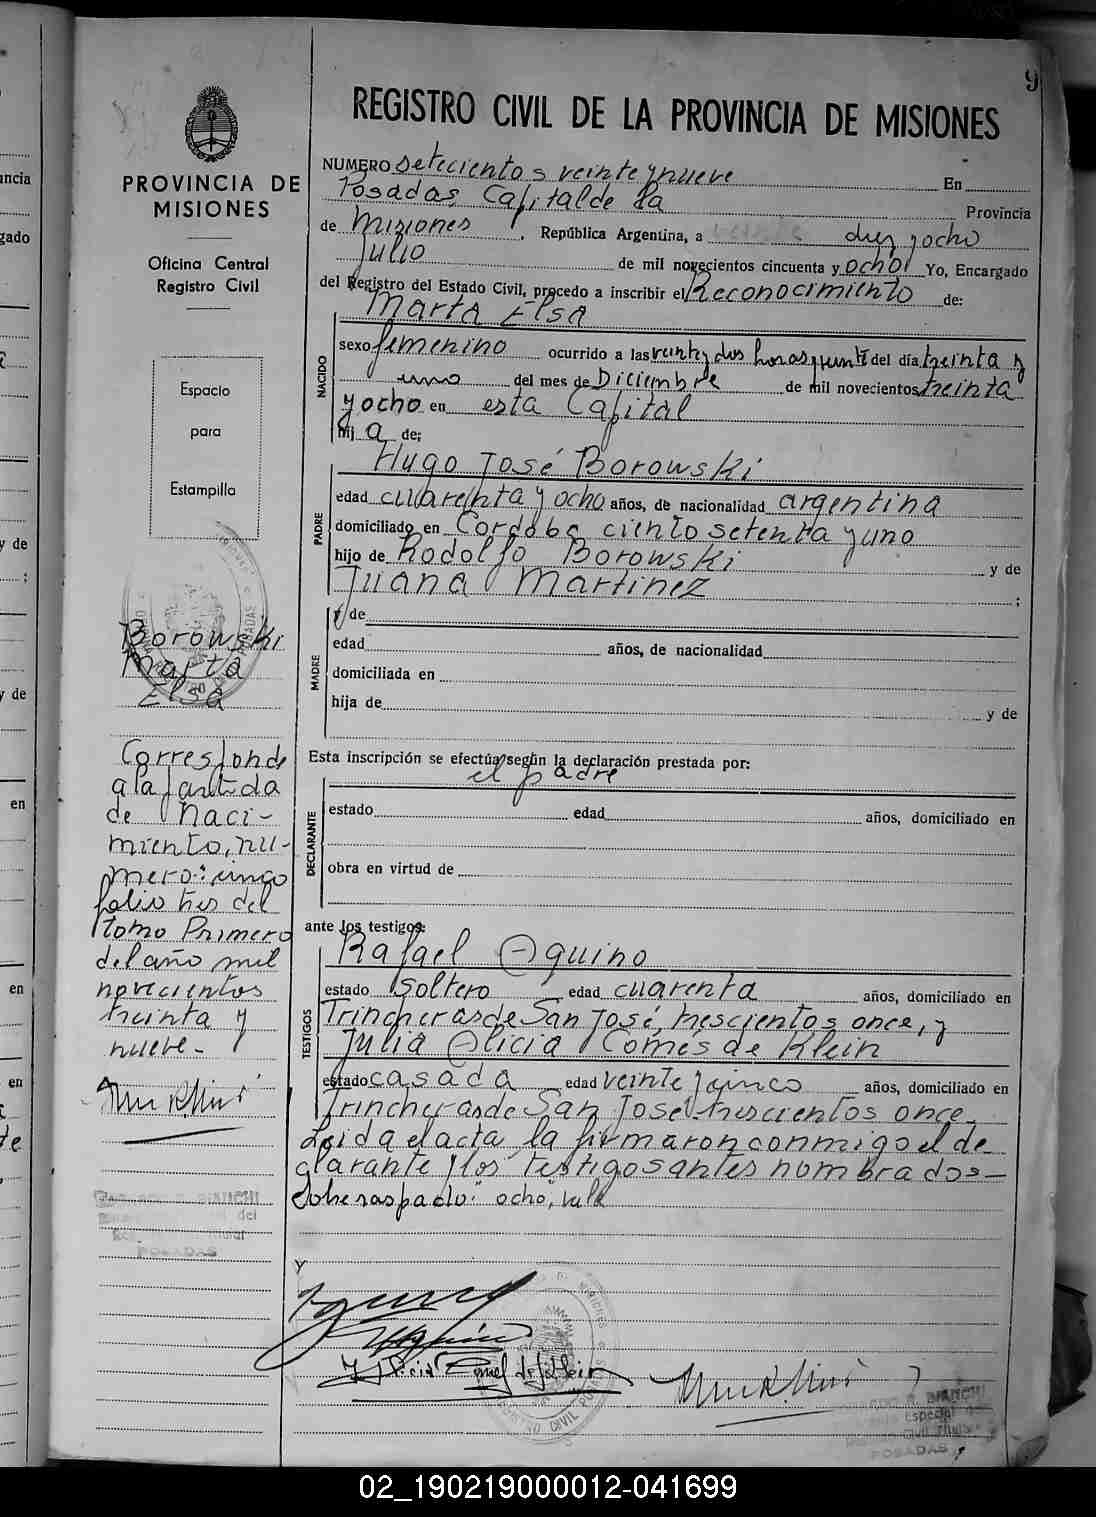 9
REGISTRO CIVIL DE LA PROVINCIA DE MISIONES
PROVINCIA DE
MISIONES
Oficina Central
Registro Civil
Espacio
para
Estampilla
Borowski
Marta
Elsa
Corresponde
a la partida
de Naci-
miento, nu-
mero: cinco
folio tres del
tomo Primero
del año mil
novecientos
treinta y
nueve-
BIANCHI
POSADAS
NUMERO setecientos veinte y nueve En
Posadas Capital de la Provincia
de Misiones, República Argentina, a diez y ocho
Julio de mil novecientos cincuenta y ocho Yo, Encargado
del Registro del Estado Civil, procedo a inscribir el Reconocimiento de:
Marta Elsa
NACIDO
sexo femenino ocurrido a las veinte y dos horas y veinte del día treinta y
uno del mes de Diciembre de mil novecientos treinta
y ocho en esta Capital
hij a de;
Hugo José Borowski
PADRE
edad cuarenta y ocho años, de nacionalidad argentina
domiciliado en Cordoba ciento setenta y uno
hijo de Rodolfo Borowski y de
Juana Martinez ;
y de
MADRE
edad años, de nacionalidad
domiciliada en
hija de y de
Esta inscripción se efectúa según la declaración prestada por:
el padre
DECLARANTE
estado edad años, domiciliado en
obra en virtud de
ante los testigos:
Rafael Aquino
TESTIGOS
estado soltero edad cuarenta años, domiciliado en
Trincheras de San José, trescientos once, y
Julia Alicia Comés de Klein
estado casada edad veinte y cinco años, domiciliado en
Trincheras de San José trescientos once.
Leida el acta, la firmaron conmigo el de-
clarante y los testigos antes nombrados-
Sobreraspado: "ocho", vale
BIANCHI
POSADAS
02_190219000012-041699